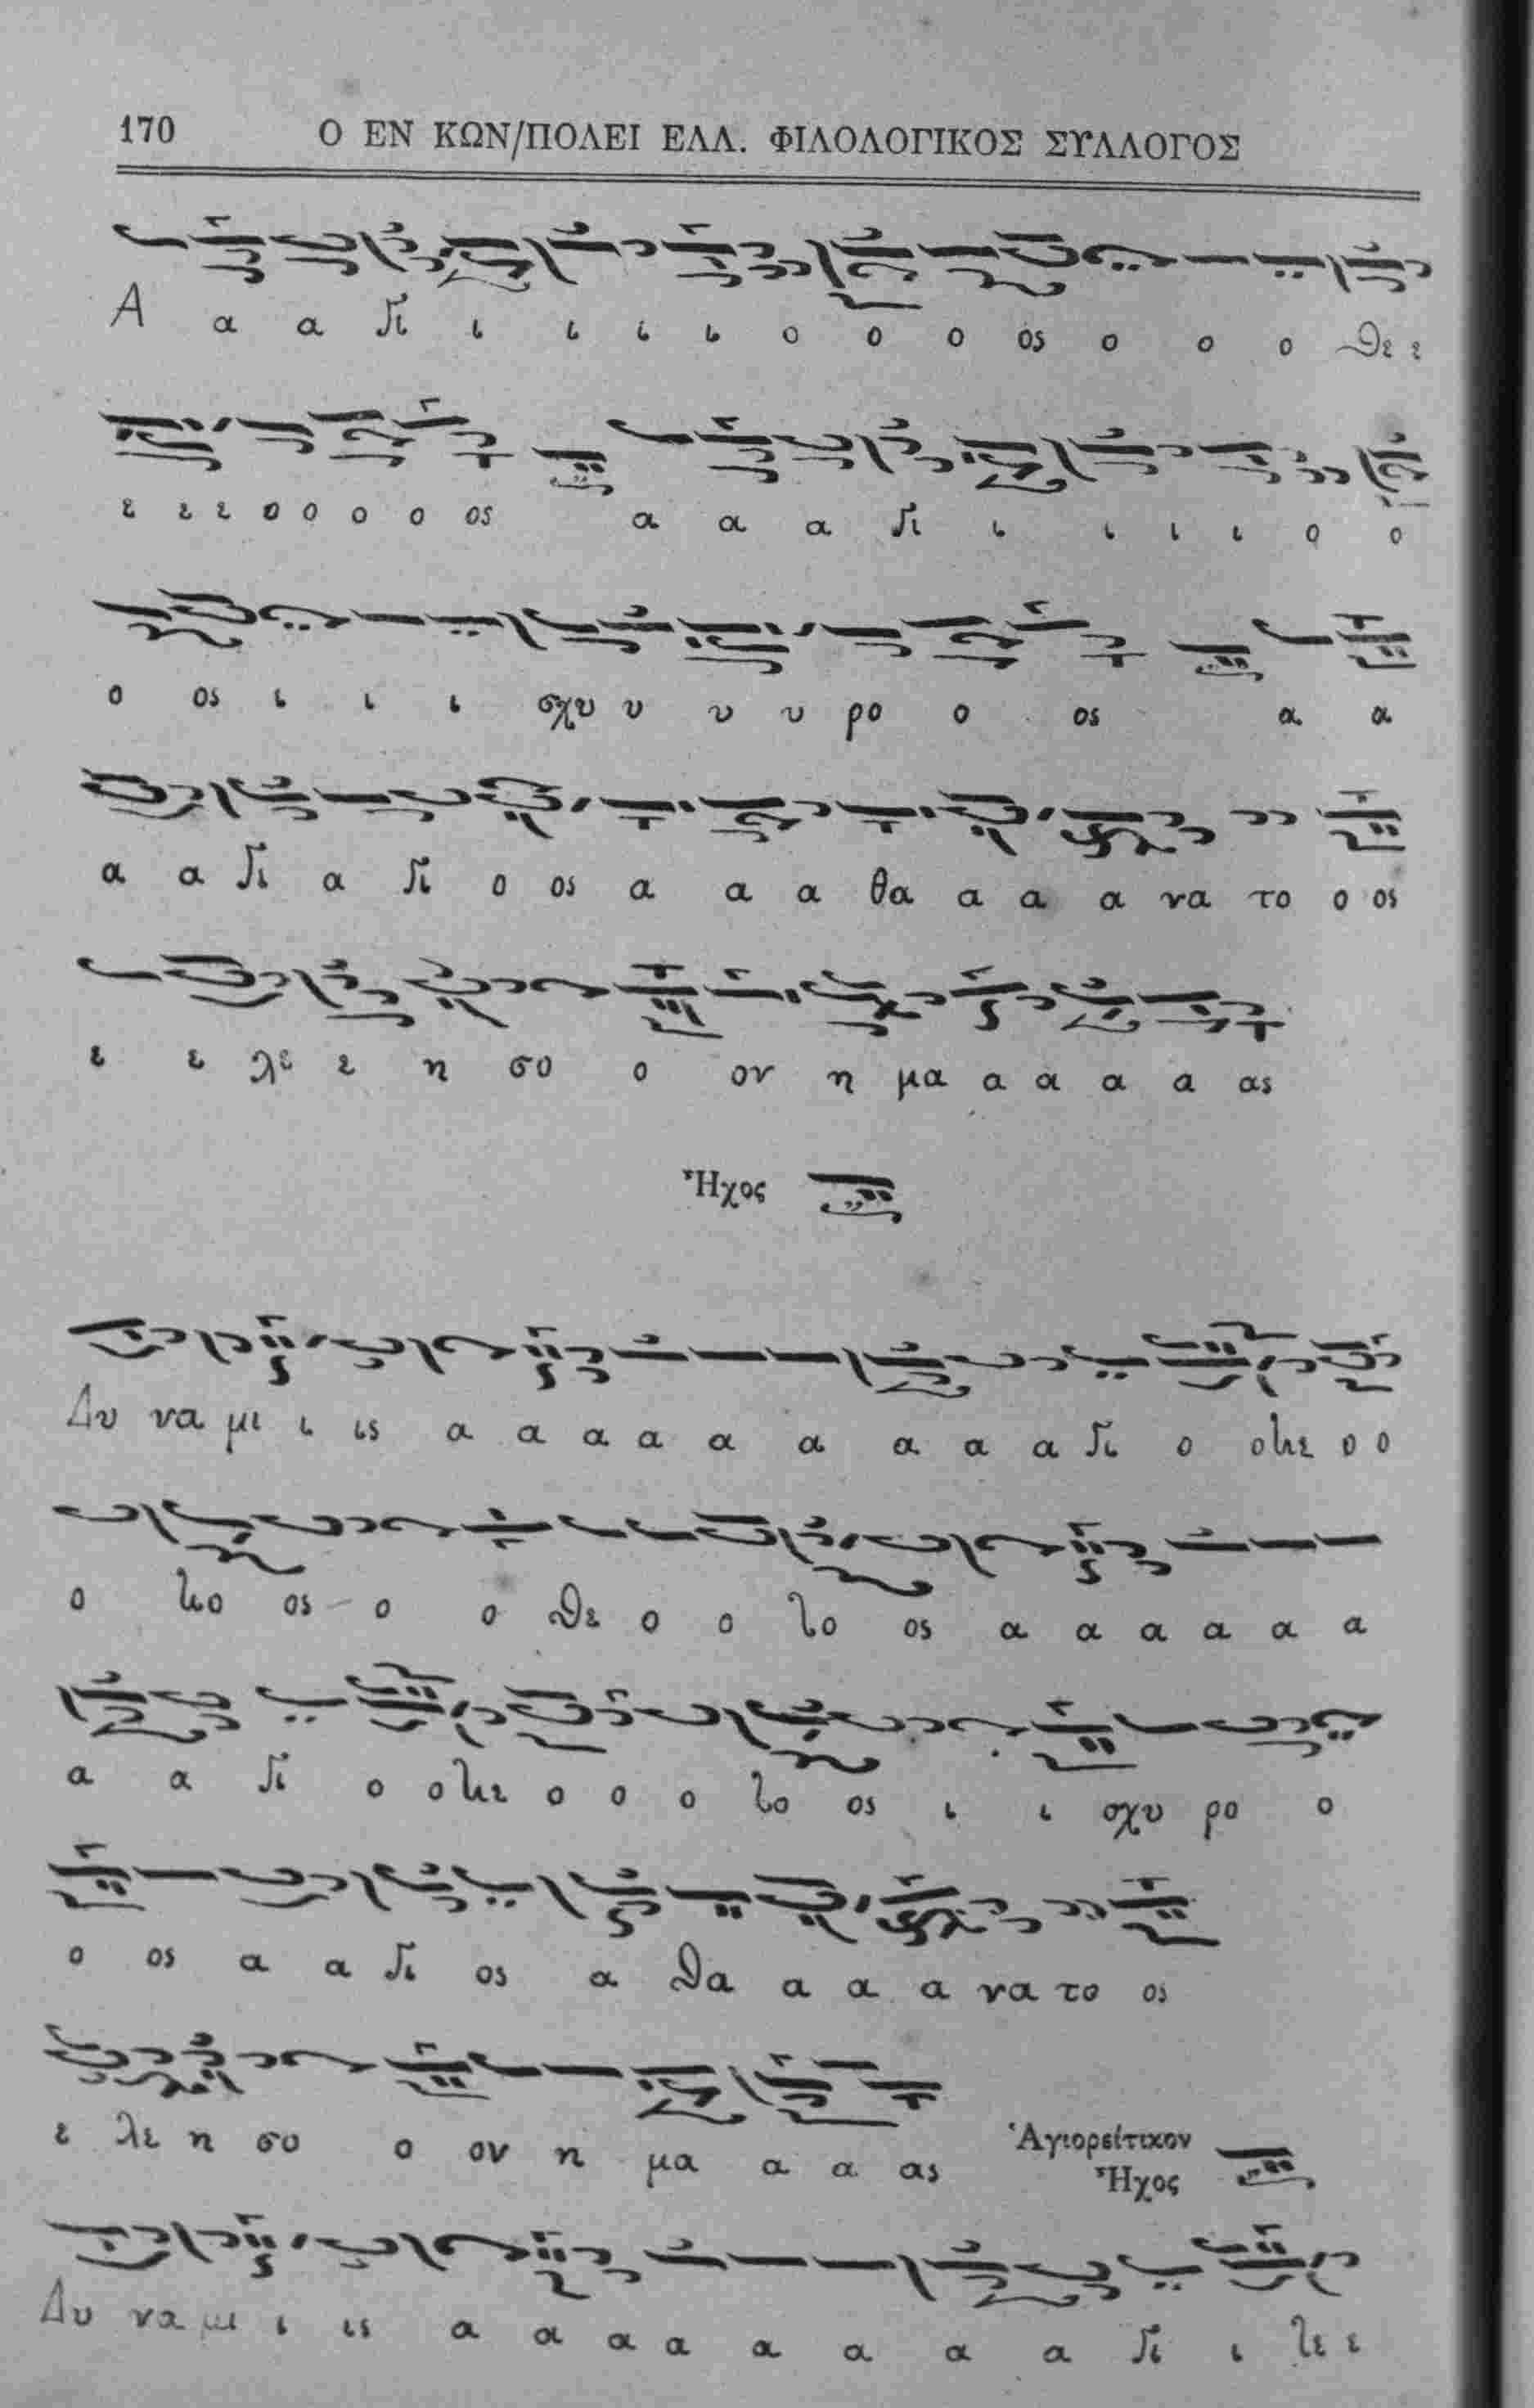 170 Ο ΕΝ ΚΩΝ/ΠΟΛΕΙ ΕΛΛ. ΦΙΛΟΛΟΓΙΚΟΣ ΣΥΛΛΟΓΟΣ
Α α α γι ι ι ι ι ο ο ο ος ο ο ο Θε ε
ε ε ε ο ο ο ο ος α α α γι ι ι ι ι ο ο
ο ος ι ι ι σχυ υ υ υ ρο ο ος α α
α α γι α γι ο ος α α α θα α α α να το ο ος
ε ε λε ε η σο ο ον η μα α α α α ας
Ἦχος
Δυ να μι ι ις α α α α α α α α α γι ο ο ο ο
ο ος ο ο Θε ο ο το ος α α α α α α
α α γι ο ο ο ο ο το ος ι ι σχυ ρο ο
ο ος α α γι ος α θα α α α να το ος
ε λε η σο ο ον η μα α α ας Ἁγιορείτικον
Ἦχος
Δυ να μι ι ις α α α α α α α α γι ι τε ε